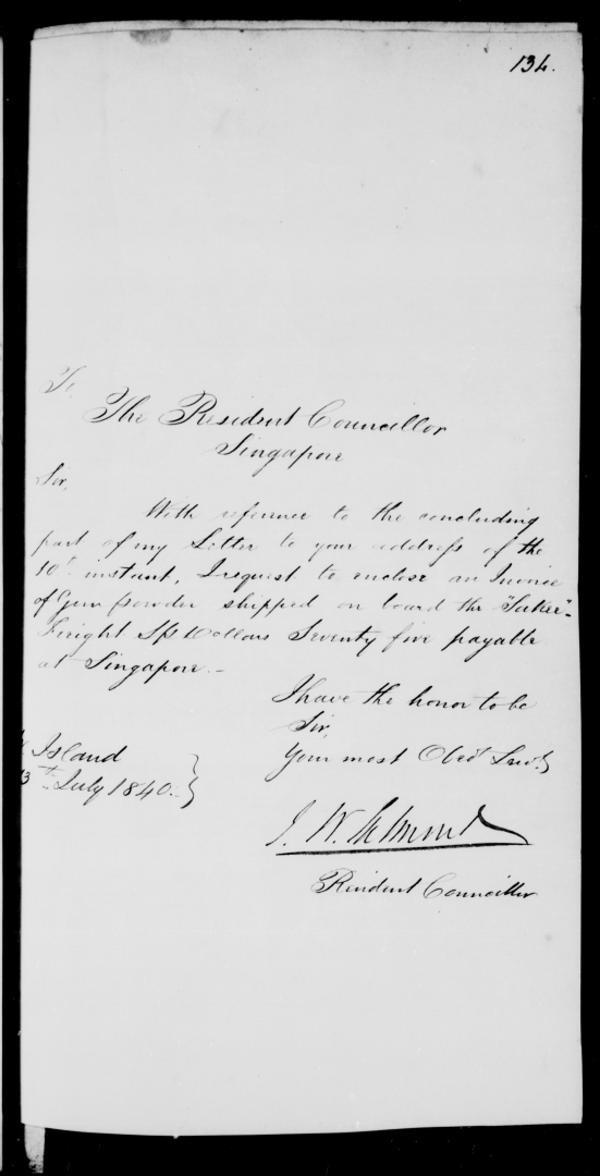 134.
To,
The Resident Councillor
Singapore
Sir,
With reference to the concluding
part of my Letter to your address of the
10th instant, I request to enclose an Invoice
of Gun powder shipped on board the
Freight Sps Dollars Seventy five payable
at Singapore.
I have the honor to be
Sir,
Your most Obedt Servt
Island
13th July 1840.
J. W.
Resident Councillor